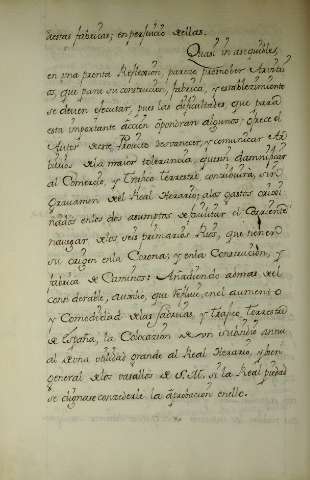 destas fabricas; en perjuicio de ellas.
Quasi inasequibles,
en una pronta Reflexion, parece promober Asuntos
que para su construcion, fabrica, y establezimiento
se deven ejecutar, pues las dificultades, que para
esta importante accion opondran algunos; ofrece el
Autor deste Proiecto desvanecer, y comunicar Ar-
bitrios de la maior tolerancia, que sin damnificar
al Comercio, y Trafico terrestre, contribuira, sin
Gravamen del Real Herario; a los gastos ocasio-
nados en los dos asumptos de facilitar el
navegar de los seis primarios Rios, que tienen
su origen en la Corona; y en la Construcion, y
fabrica de Caminos: Añadiendo ademas del
considerable, auxilio, que en el aumento
y Comodidad de las fabricas, y trafico terrestre
de España, la Colocacion de un subsidio annu
al de una utilidad grande al Real Herario, y bien
general de los vasallos de S. M. si la Real piedad
se dignase concederle la aprobacion en ello.